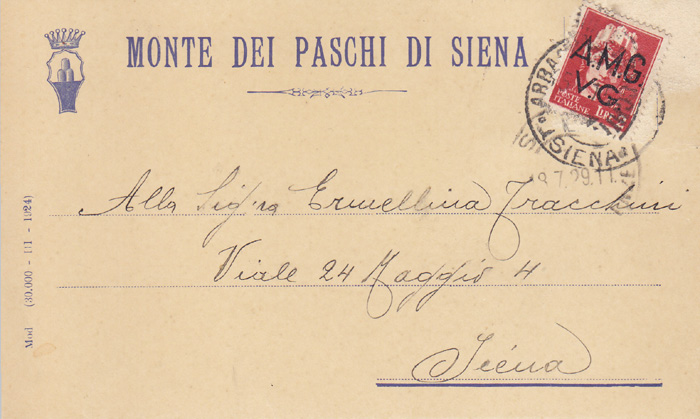 MONTE DEI PASCHI DI SIENA
A.M.G.
V.G.
POSTE ITALIANE LIRE 2
SIENA
7.29.11
Alla Sig/ra Ermellina Fracchini
Viale 24 Maggio 4
Siena
Mod (30.000 - III - 1924)